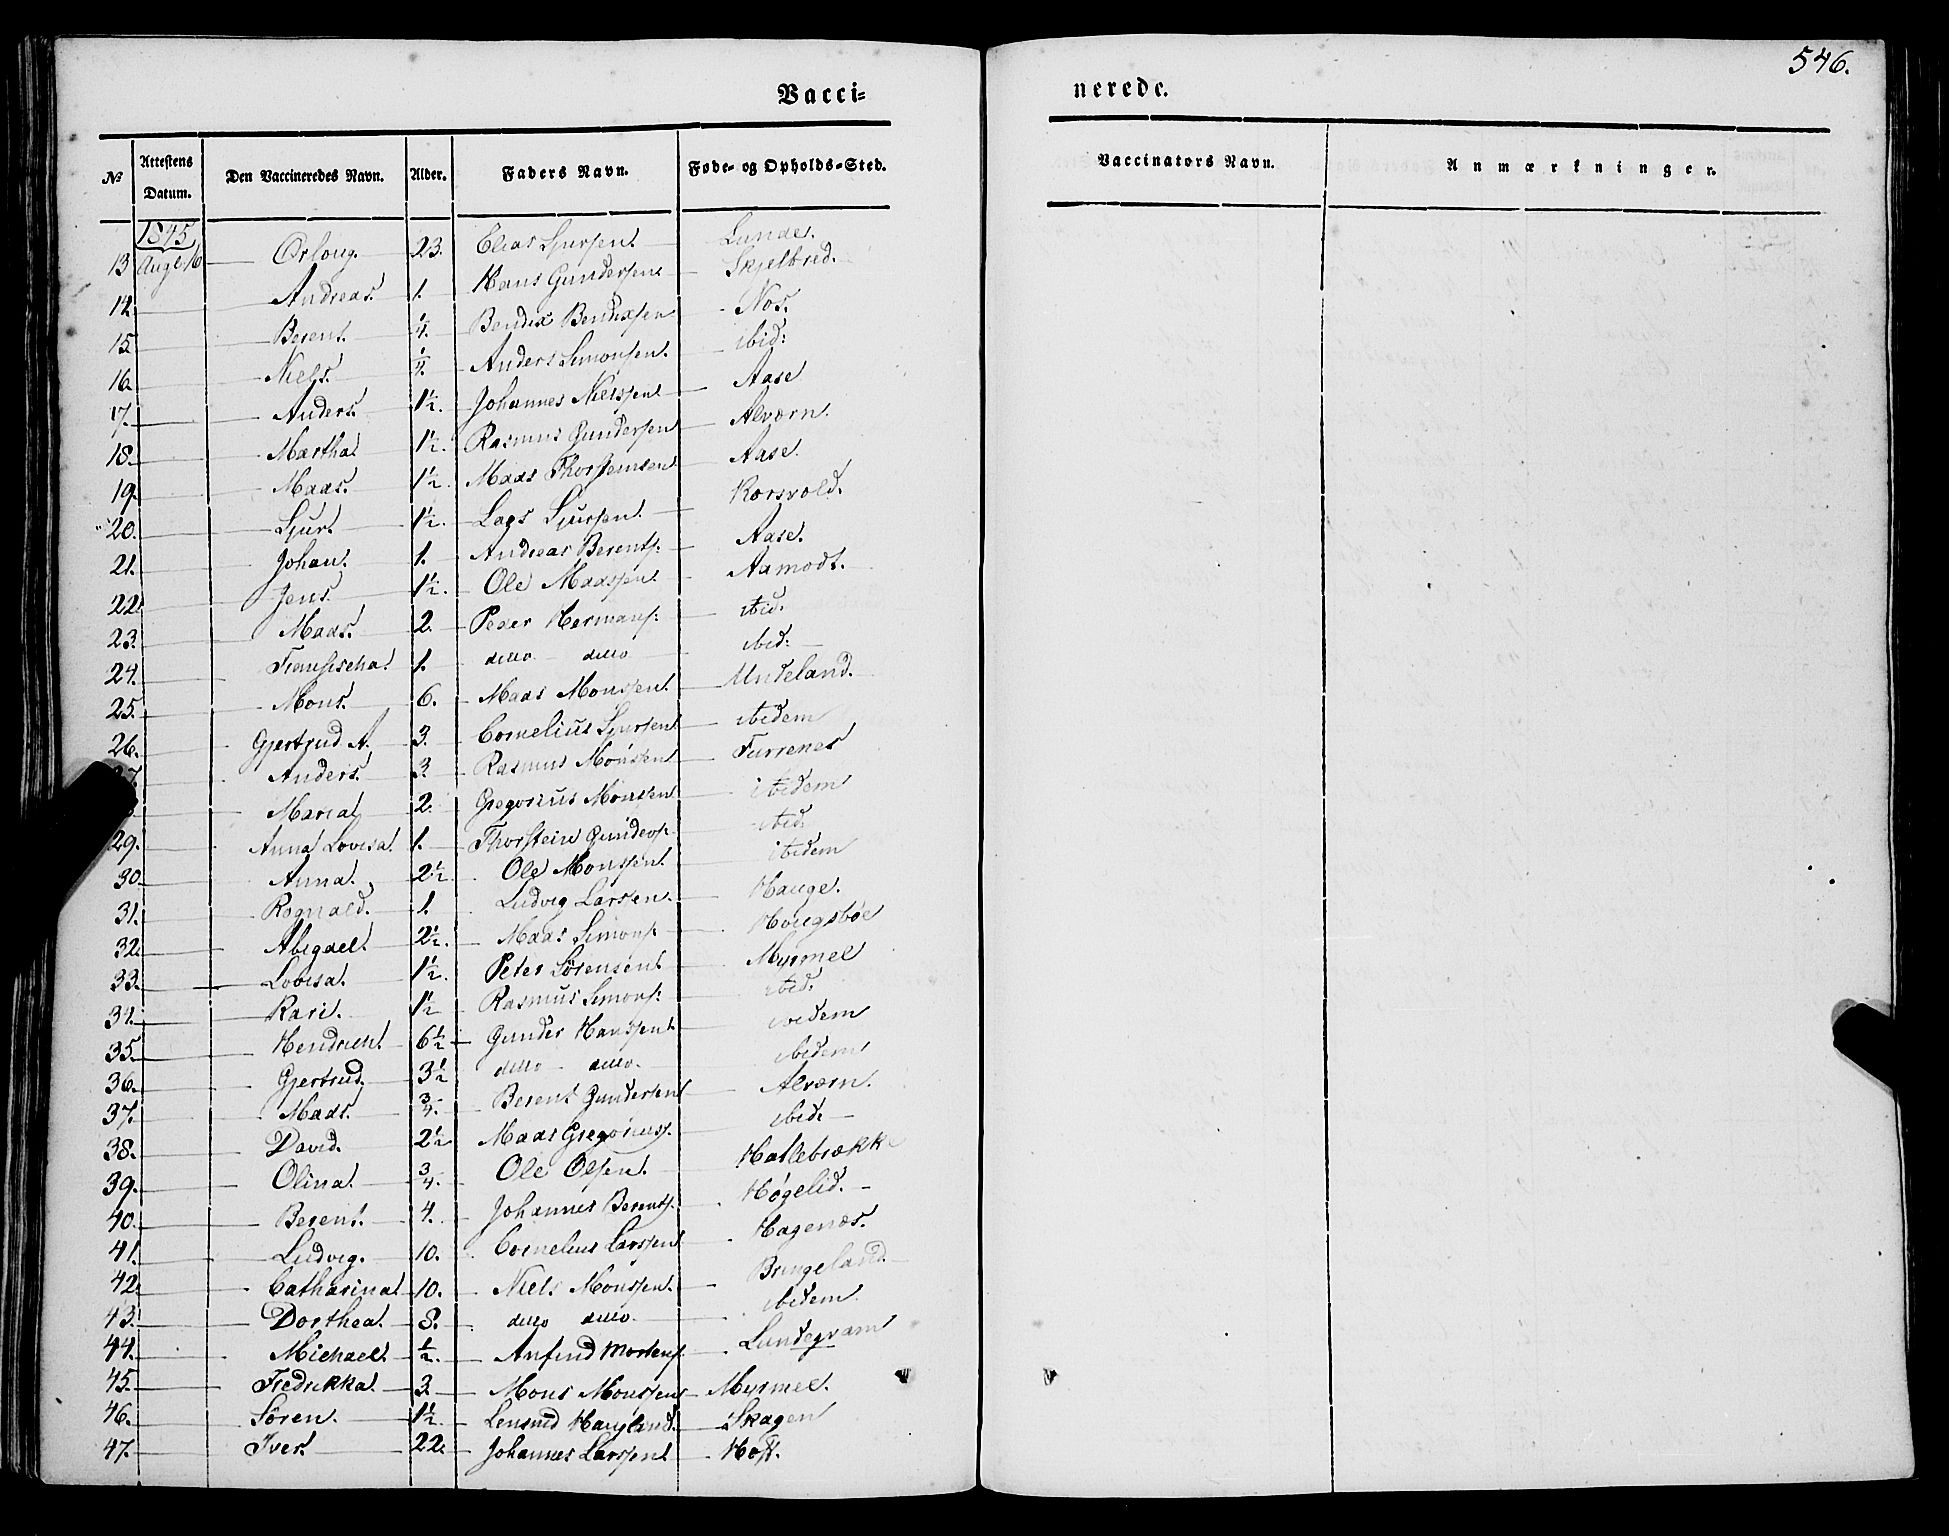 546.
Vacci-
nerede.
No Attestens Datum. Den Vaccineredes Navn. Alder. Faders Navn. Føde- og Opholds-Sted. Vaccinators Navn. Anmærkninger.
1845
13 Aug: 16 Orloug. 23. Elias Sjursen Lunde.
14. Andreas. 1. Hans Gundersen Skjelbred.
15. Berent. 1/4. Bendix Bendixsen Nos.
16. Niels. 1/4. Anders Simonsen. ibid:
17. Anders. 1 1/2. Johannes Nielssen Aase
18. Martha 1 1/2. Rasmus Gundersen Alværn.
19. Maas. 1 1/2. Maas Thorstensen Aase.
20. Sjur 1 1/2. Lars Sjursen. Korsvold.
21. Johan. 1. Andreas Berents. Aase.
22. Jens 1 1/2. Ole Maassen Aamodt.
23. Maas. 2. Peder Hermans: ibid.
24. 1. ditto ditto ibid:
25. Mons. 6. Maas Monssen. Undeland.
26. Gjertrud A. 3. Cornelius Sjursen ibidem
Anders. 3. Rasmus Monssen Furrenes
Maria 2. Gregorius Monssen ibidem
29. Anna Lovisa. 1. Thorstein Gunders. ibid.
30. Anna. 2 1/2. Ole Monssen. ibidem
31. Rognald. 1. Ludvig Larsen. Hauge.
32. Abigael. 2 1/2. Maas Simons: Hougsbøe
33. Lovisa. 1 1/2. Peter Sørensen Myrmel
34. Kari. 1 1/2 Rasmus Simons: ibid.
35. Hendrich. 6 1/2 Gunder Hanssen ibidem
36. Gjertrud. 3 1/2 ditto ditto. ibidem
37. Maas. 3/4. Berent Gundersen Alværn.
38. David. 2 1/2 Maas Gregoriuss. ibid.
39. Olina. 3/4. Ole Olsen. Hatlebrække
40. Berent. 4. Johannes Berents. Høgelid.
41. Ludvig. 10. Cornelius Larssen Hagenæs.
42. Catharina 10. Niels Monssen. Bringeland.
43. Dorthea. 8. ditto ditto. ibidem.
44. Michael. 1/2. Anfind Mortens. Lundegram
45. Fredrikka. 3. Mons Monssen Myrmel.
46. Søren. 1 1/2. Haugland. Skagen
47. Iver. 22. Johannes Larssen Hoff.